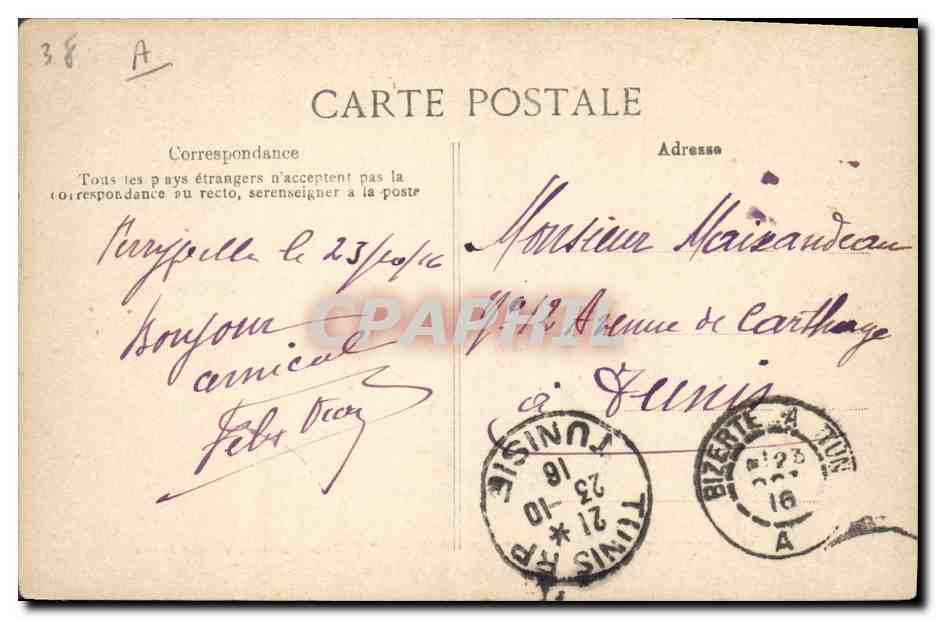 38 A
CARTE POSTALE
Correspondance
Tous les pays étrangers n'acceptent pas la
correspondance au recto, se renseigner à la poste
Adresse
le 23/10/16
Bonjour
amical
Félix
Monsieur Maizandeau
12 Avenue de Carthage
à Tunis
CPAPHIL
TUNIS RP
21 * 23 -10 16
TUNISIE
BIZERTE A TUN
23
OCT
16
A